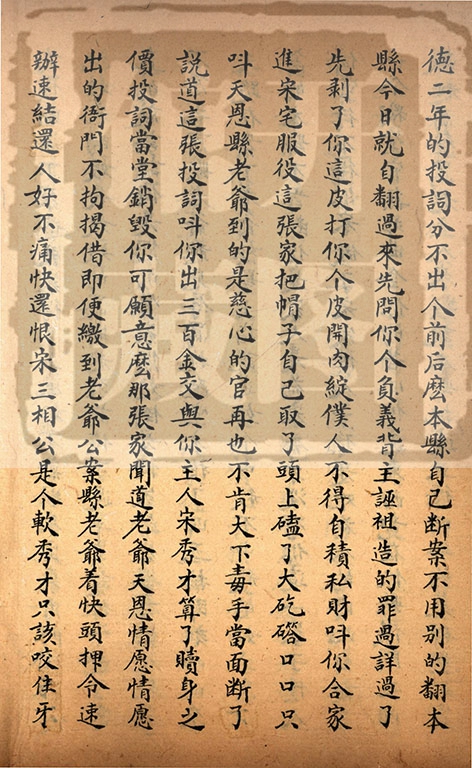 德二年的投詞分不出个前后麽本縣自己断案不用別的翻本
縣今日就自翻過來先問你个負義背主誣祖造的罪過詳過了
先剥了你這皮打你个皮開肉綻僕人不得自積私財呌你合家
進宋宅服役這張家把帽子自己取了頭上磕了大矻磴口口只
呌天恩縣老爺到的是慈心的官再也不肯大下毒手當面断了
説道這張投詞呌你出三百金交與你主人宋秀才算了贖身之
價投詞當堂銷毀你可願意麽那張家聞道老爺天恩情愿情愿
出的衙門不拘揭借即便繳到老爺公案縣老爺着快頭押令速
辦速結還人好不痛快還恨宋三相公是个軟秀才只該咬住牙